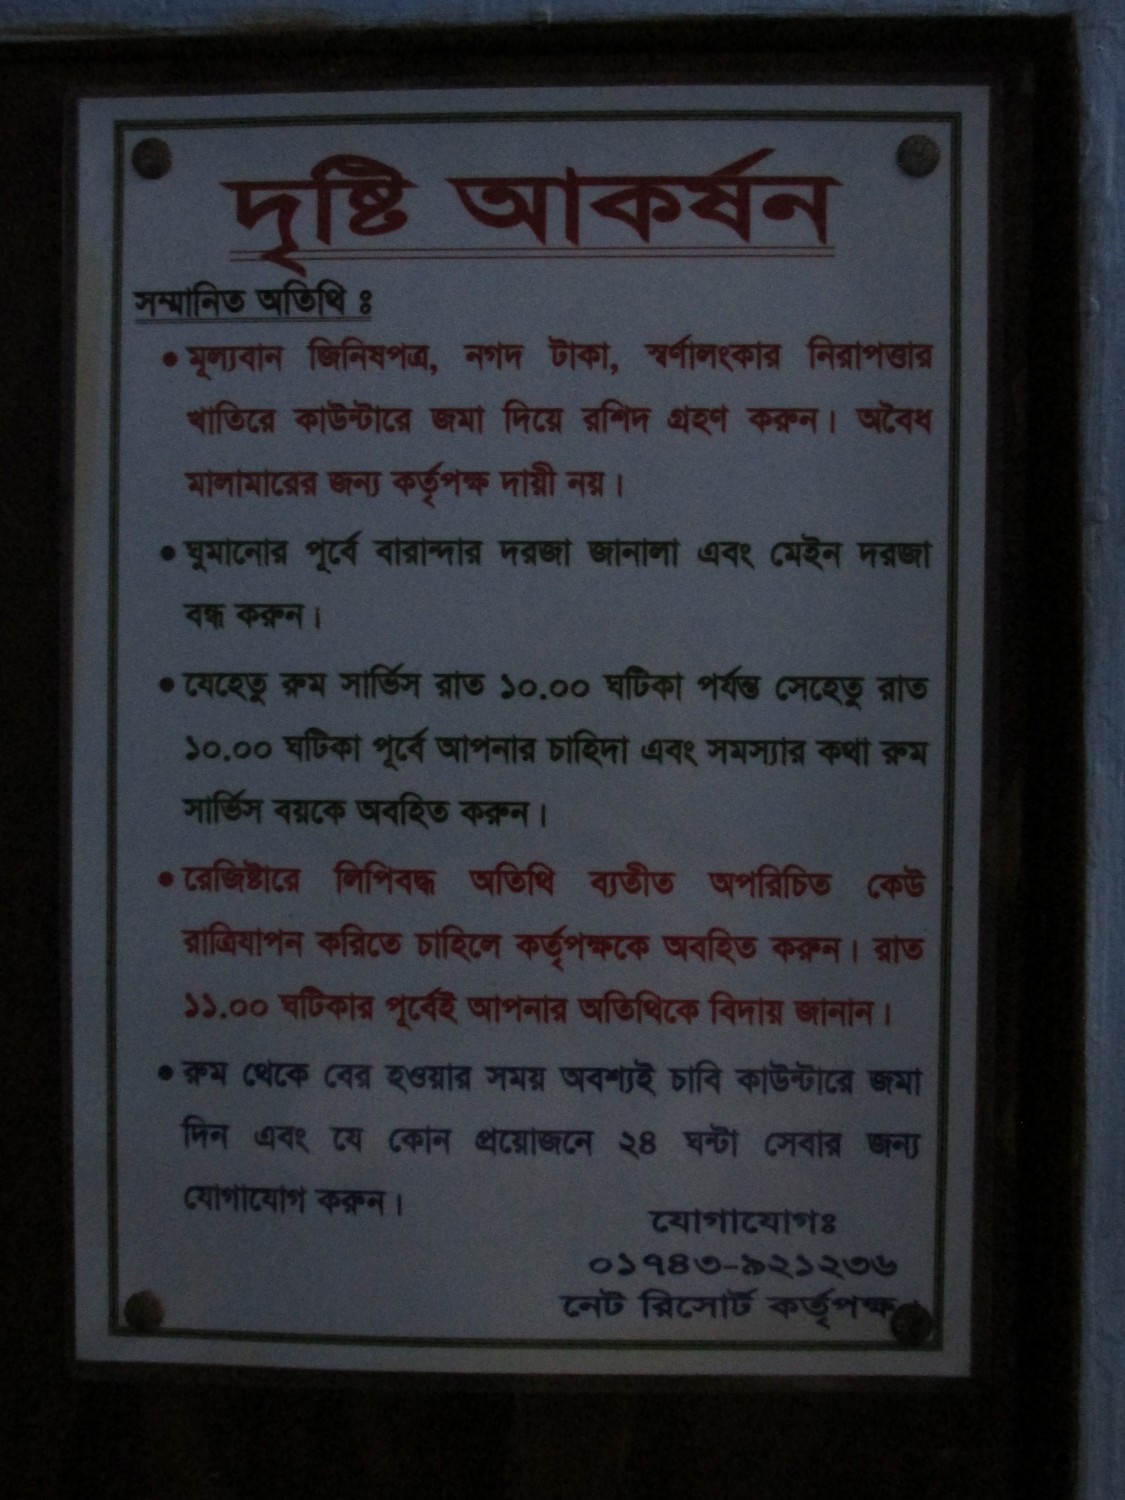 দৃষ্টি আকর্ষন
সম্মানিত অতিথি ঃ
• মূল্যবান জিনিষপত্র, নগদ টাকা, স্বর্ণালংকার নিরাপত্তার
খাতিরে কাউন্টারে জমা দিয়ে রশিদ গ্রহণ করুন। অবৈধ
মালামারের জন্য কর্তৃপক্ষ দায়ী নয়।
• ঘুমানোর পূর্বে বারান্দার দরজা জানালা এবং মেইন দরজা
বন্ধ করুন।
• যেহেতু রুম সার্ভিস রাত ১০.০০ ঘটিকা পর্যন্ত সেহেতু রাত
১০.০০ ঘটিকা পূর্বে আপনার চাহিদা এবং সমস্যার কথা রুম
সার্ভিস বয়কে অবহিত করুন।
• রেজিষ্টারে লিপিবদ্ধ অতিথি ব্যতীত অপরিচিত কেউ
রাত্রিযাপন করিতে চাহিলে কর্তৃপক্ষকে অবহিত করুন। রাত
১১.০০ ঘটিকার পূর্বেই আপনার অতিথিকে বিদায় জানান।
• রুম থেকে বের হওয়ার সময় অবশ্যই চাবি কাউন্টারে জমা
দিন এবং যে কোন প্রয়োজনে ২৪ ঘন্টা সেবার জন্য
যোগাযোগ করুন।
যোগাযোগঃ
০১৭৪৩-৯২১২৩৬
নেট রিসোর্ট কর্তৃপক্ষ